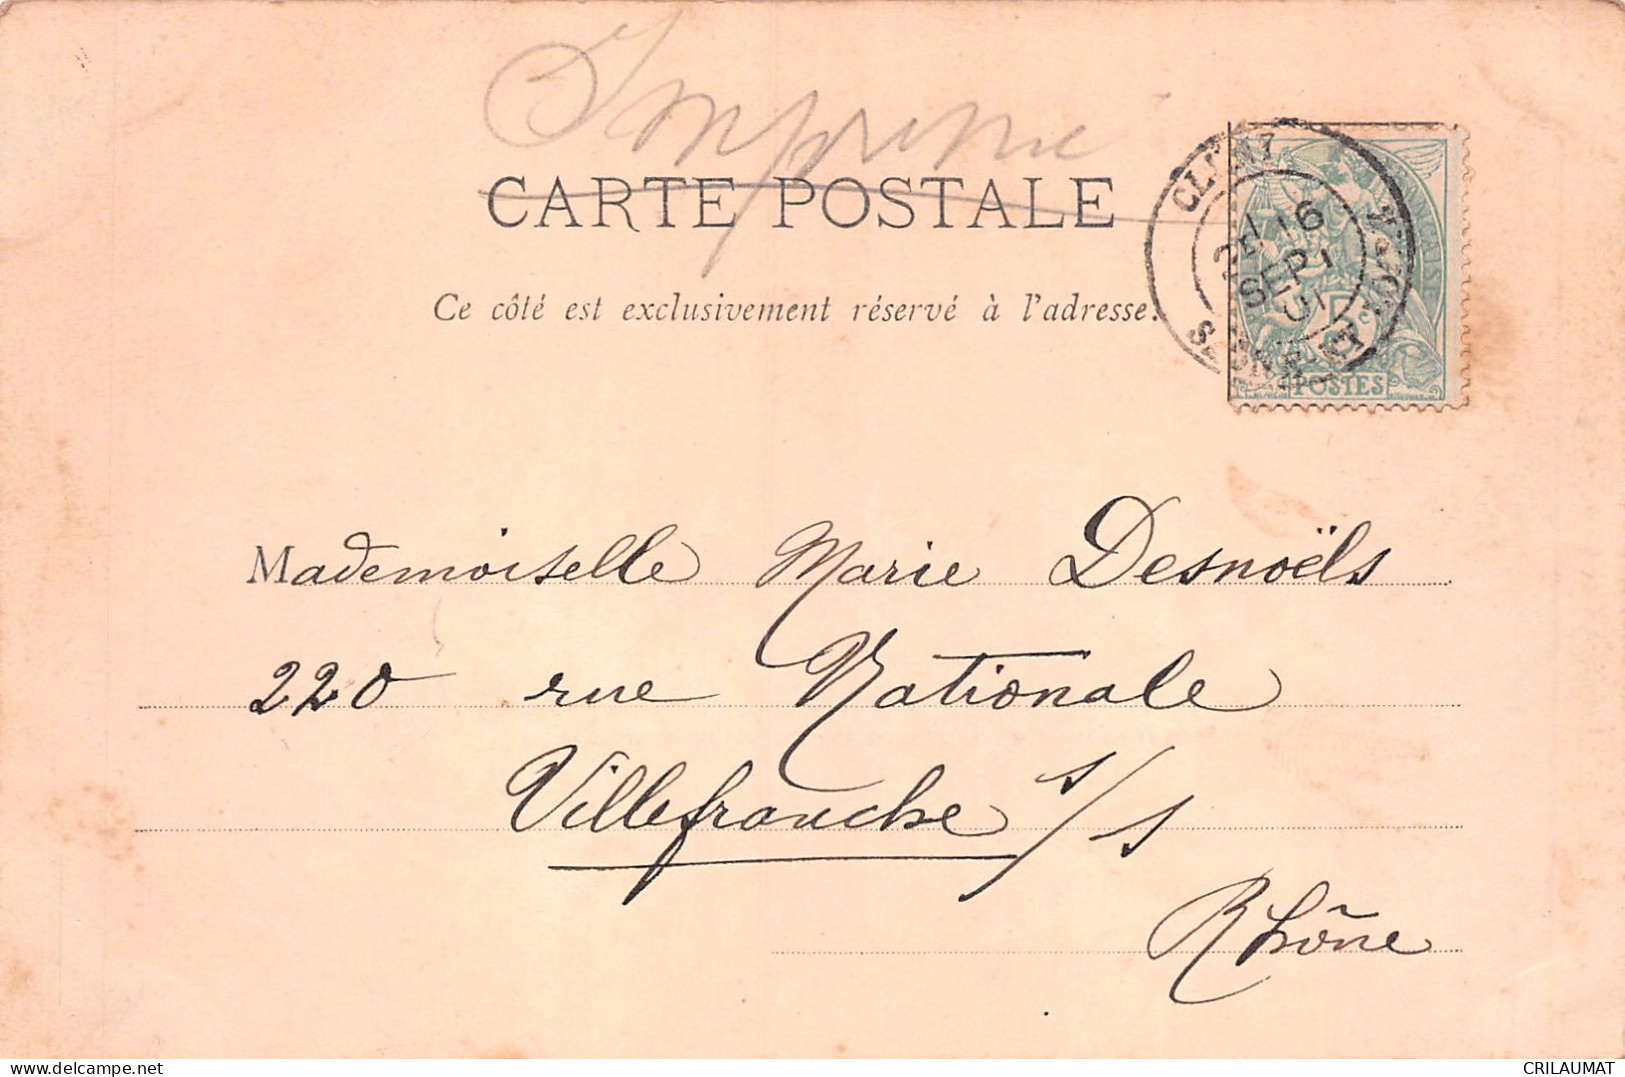 Imprimé
CARTE POSTALE
Ce côté est exclusivement réservé à l'adresse.
CLUNY
16
25
SEPT
01
POSTES
Mademoiselle Marie Desnoëls
220 rue Nationale
Villefranche s/s
Rhône
delcampe.net
CRILAUMAT